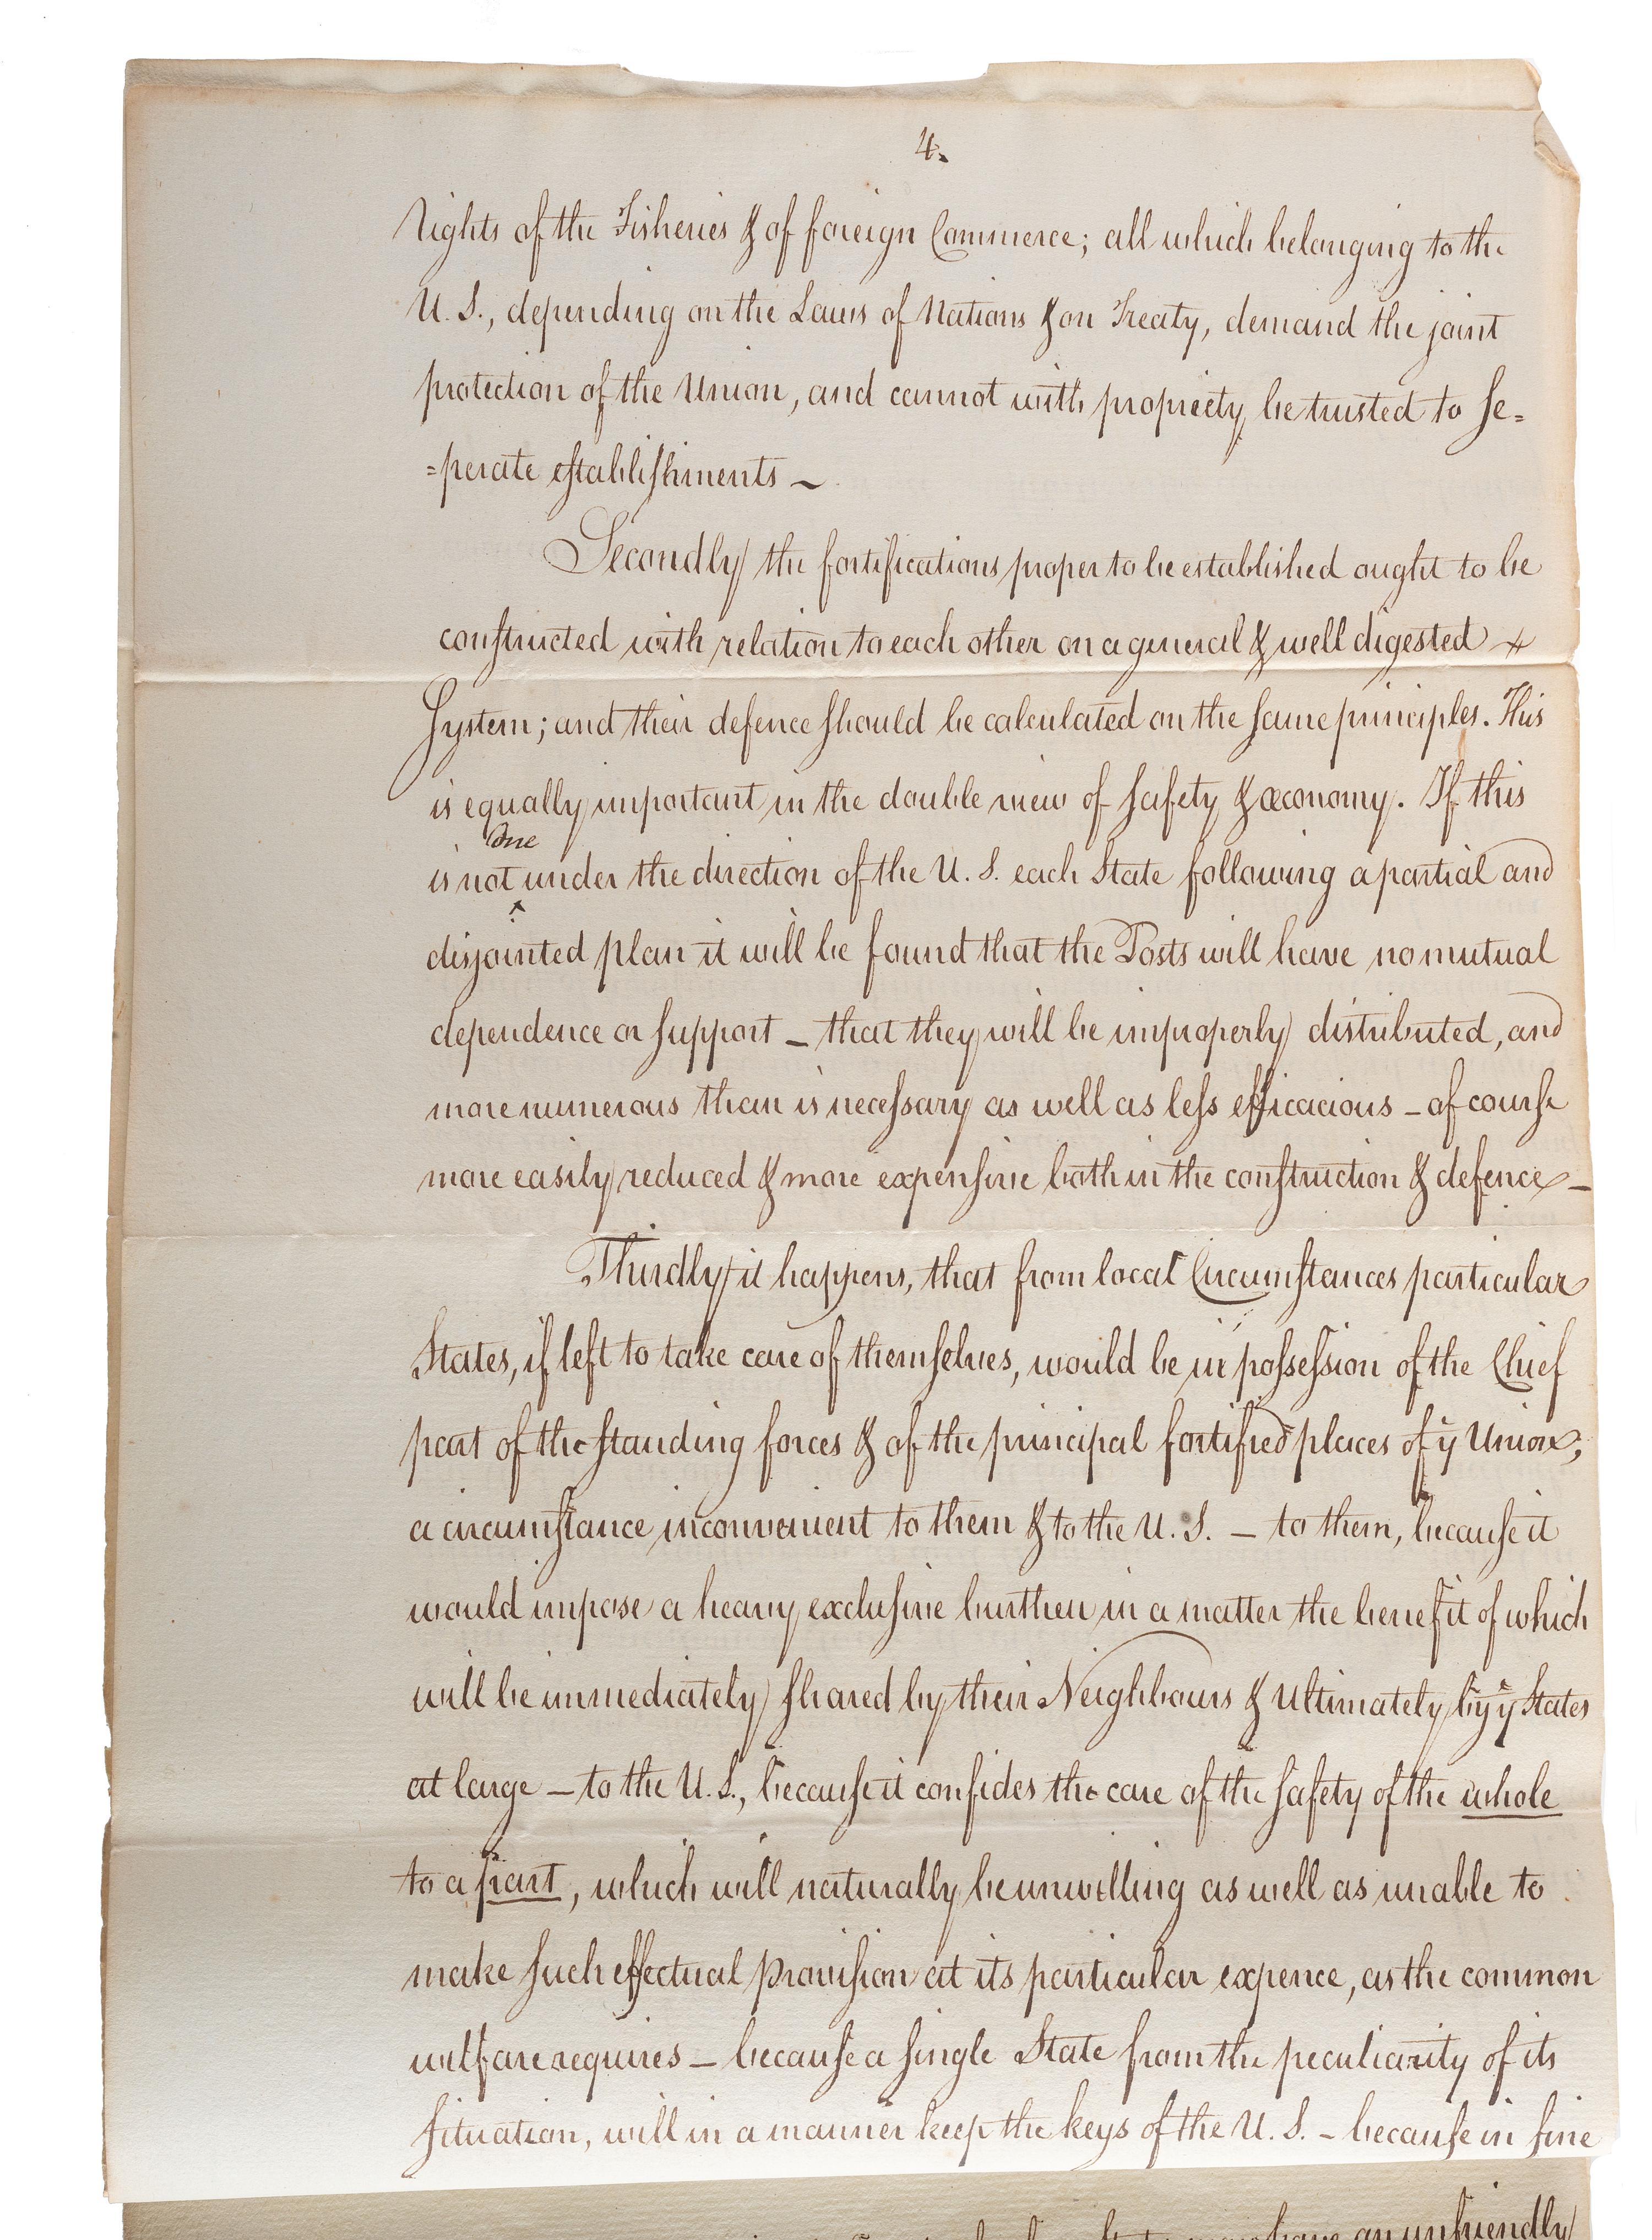 4.
rights of the Fisheries & of foreign Commerce; all which belonging to the
U. S., depending on the Laws of Nations & on Treaty, demand the joint
protection of the Union, and cannot with propriety be trusted to se=
=perate establishments ~
Secondly the fortifications proper to be established ought to be
constructed with relation to each other on a general & well digested
System; and their defence should be calculated on the same principles. This
is equally important in the double view of safety & œconomy. If this
One
is not ‸ under the direction of the U. S. each State following a partial and
disjointed plan it will be found that the Posts will have no mutual
dependence or support – that they will be improperly distributed, and
more numerous than is necessary as well as less efficacious – of course
more easily reduced & more expensive both in the construction & defence –
Thirdly it happens, that from local Circumstances particular
States, if left to take care of themselves, would be in possession of the Chief
part of the standing forces & of the principal fortified places of yͤ Union;
a circumstance inconvenient to them & to the U. S. – to them, because it
would impose a heavy exclusive burthen in a matter the benefit of which
will be immediately shared by their Neighbours & ultimately by yͤ States
at large – to the U. S., because it confides the care of the safety of the whole
to a part, which will naturally be unwilling as well as unable to
make such effectual provision at its particular expence, as the common
welfare requires – because a single State from the peculiarity of its
situation, will in a manner keep the keys of the U. S. – because in fine
an unfriendly